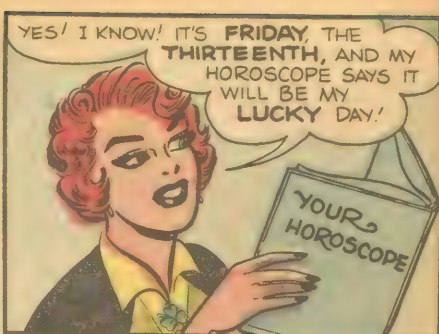 YES! I KNOW! IT'S FRIDAY, THE
THIRTEENTH, AND MY
HOROSCOPE SAYS IT
WILL BE MY
LUCKY DAY!
YOUR
HOROSCOPE